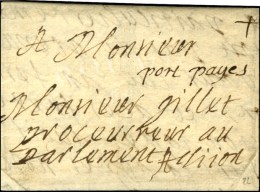 A Monsieur
port payes
Monsieur gillet
procurreur au
parlement A dijon